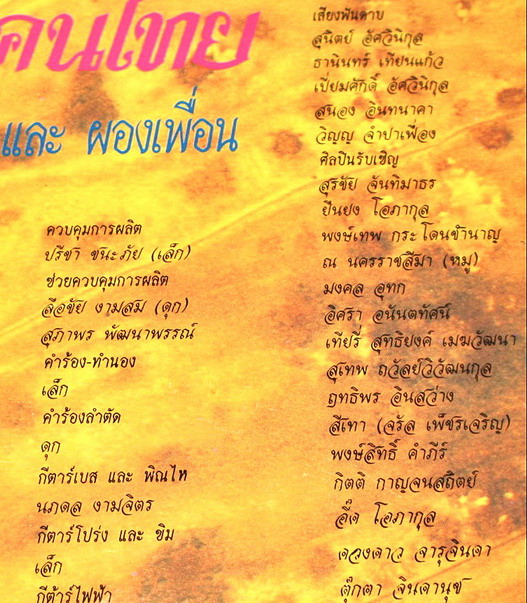 คนไทย
และ ผองเพื่อน
ควบคุมการผลิต
ปรีชา ชนะภัย (เล็ก)
ช่วยควบคุมการผลิต
ลือชัย งามสม (ดุก)
สุภาพร พัฒนาพรรณ์
คำร้อง-ทำนอง
เล็ก
คำร้องลำตัด
ดุก
กีตาร์เบส และ พิณไห
นภดล งามจิตร
กีตาร์โปร่ง และ ขิม
เล็ก
กีต้าร์ไฟฟ้า
เสียงฟันดาบ
สนิตย์ อัศวินิกุล
ธานินทร์ เทียนแก้ว
เปี่ยมศักดิ์ อัศวินิกุล
สนอง อินทนาคา
วิญญู จำปาเฟื่อง
ศิลปินรับเชิญ
สุรชัย จันทิมาธร
ยืนยง โอภากุล
พงษ์เทพ กระโดนชำนาญ
ณ นครราชสีมา (หมู)
มงคล อุทก
อิศรา อนันตทัศน์
เทียรี่ สุทธิยงค์ เมฆวัฒนา
สุเทพ ถวัลย์วิวัฒนกุล
ฤทธิพร อินสว่าง
สีเทา (จรัล เพ็ชรเจริญ)
พงษ์สิทธิ์ คำภีร์
กิตติ กาญจนสถิตย์
อี๊ด โอภากุล
ดวงดาว จารุจินดา
ตุ๊กตา จินดานุช